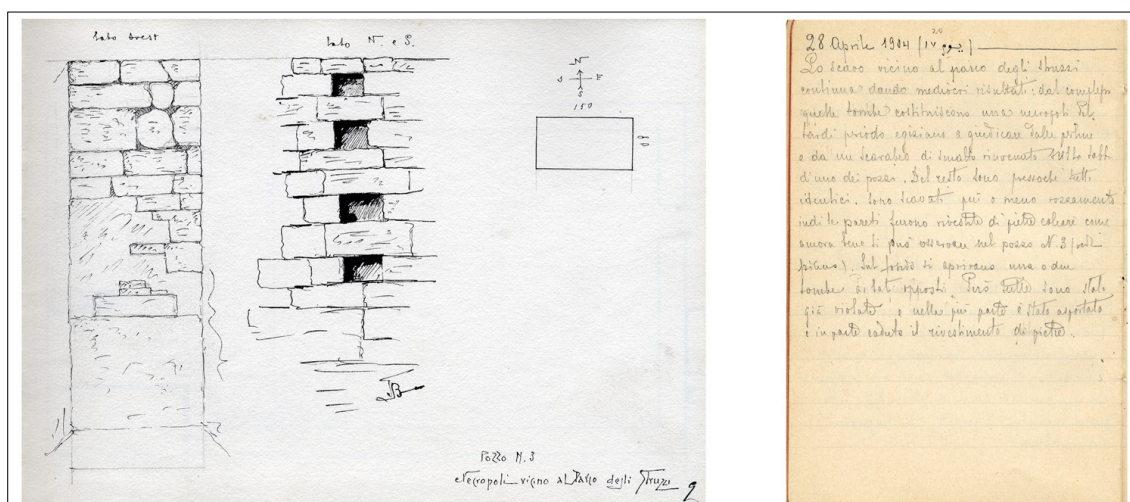 lato ovest
lato N. e S.
N
S
E
S
150
80
JB
Pozzo N. 3
Necropoli vicino al Parco degli Struzzi
9
28 Aprile 1904
Lo scavo vicino al parco degli struzzi
continua dando mediocri risultati: dal complesso
quelle tombe costituiscono una necropoli del
tardi periodo egiziano a giudicare dalle prime
e da un scarabeo di smalto rinvenuto
di uno dei pozzi. Del resto sono pressoché tutti
identici. Sono scavati più o meno rozzamente
indi le pareti furono rivestite di pietre calcari come
ancora bene si può osservare nel pozzo N. 3 (vedi
). Sul fondo si aprivano una o due
tombe ai lati opposti. Però tutte sono state
già violate e nella più parte è stato asportato
e in parte caduto il rivestimento di pietre.